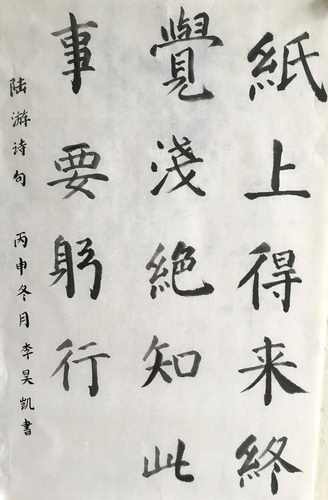 紙上得来終
覺淺絶知此
事要躬行
陆游诗句 丙申冬月李昊凯書